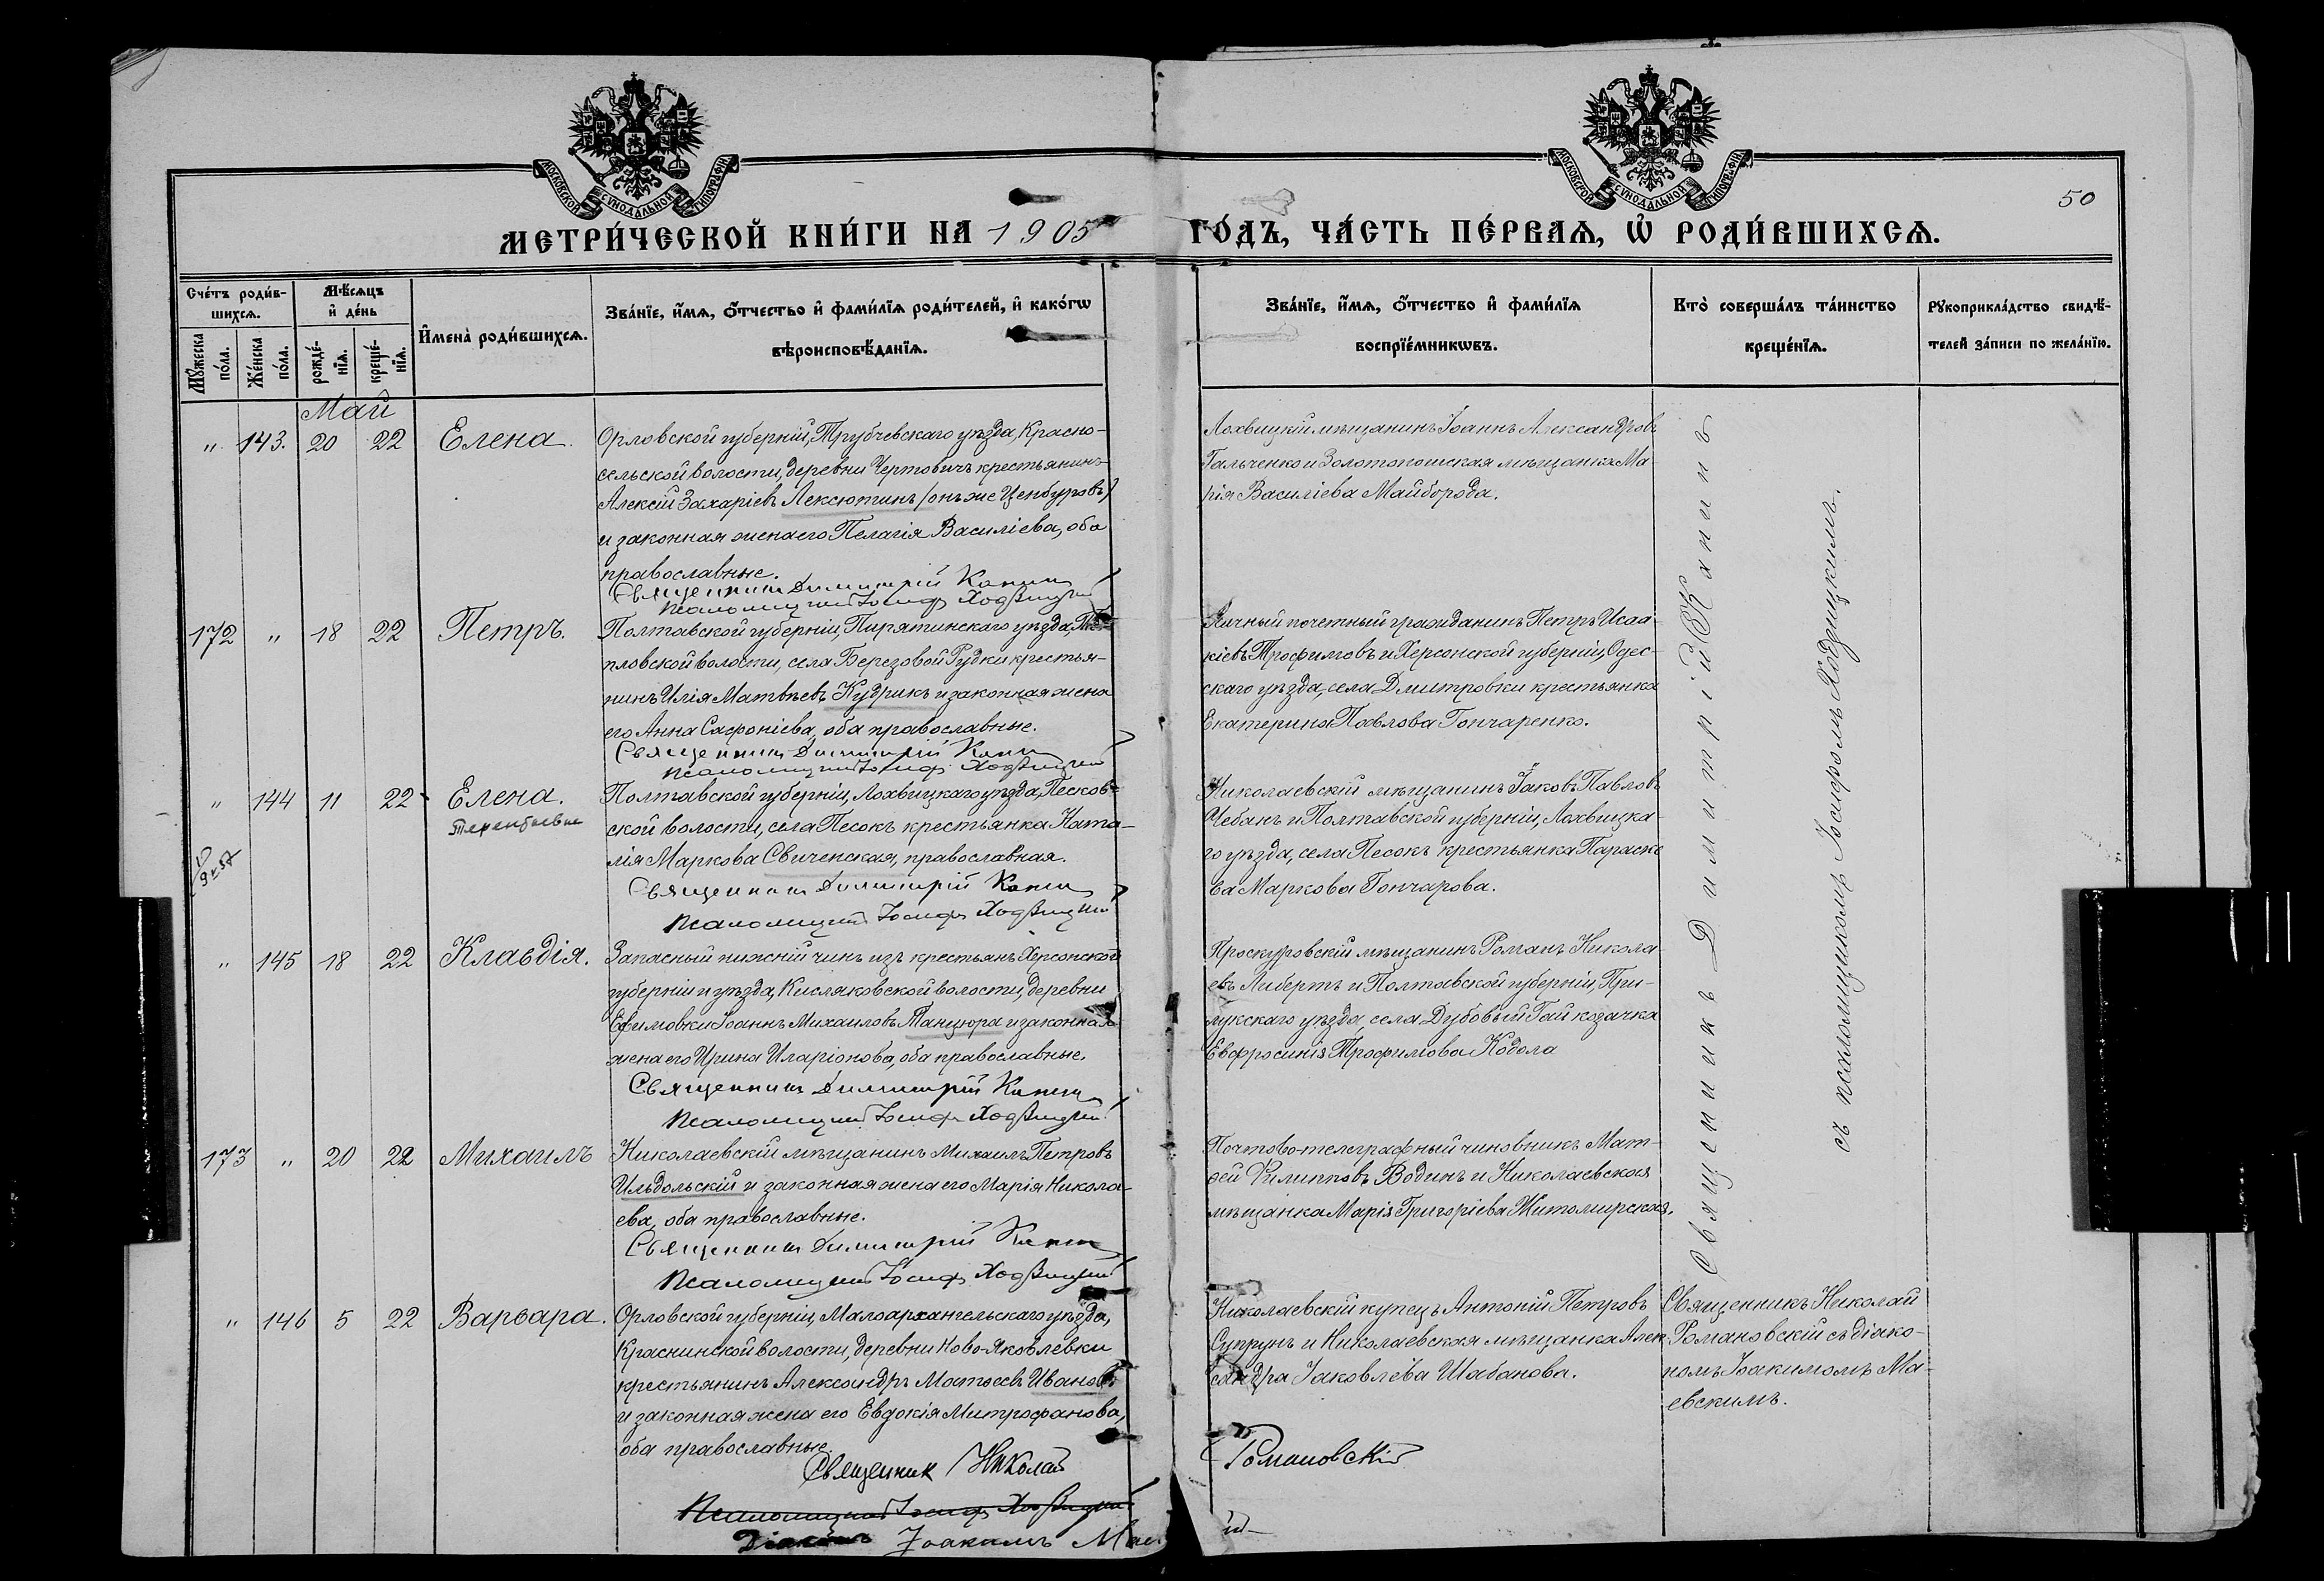 МОСКОВСКОЙ СУНОДАЛЬНОЙ ТИПОГРАФІИ
МОСКОВСКОЙ СУНОДАЛЬНОЙ ТИПОГРАФІИ
50
МЕТРИ́ЧЕСКОЙ КНИ́ГИ НА 1905
ГО́ДЪ, ЧА́СТЬ ПЕ́РВАѦ, Ѡ РОДИ́ВШИХСѦ.
Сче́тъ роди́в-
шихсѧ.
Мꙋ́жеска по́ла.
Же́нска по́ла.
Мѣ́сѧцъ
и҆ де́нь
рожде́-
нїѧ.
креще́-
нїѧ.
И҆мена̀ роди́вшихсѧ.
Зва́нїе, и҆́мѧ, ѻ҆́тчество и҆ фами́лїѧ роди́телей, и҆ како́гѡ
вѣроисповѣ́данїѧ.
Зва́нїе, и҆́мѧ, ѻ҆́тчество и҆ фами́лїѧ
воспрїе́мникѡвъ.
Кто̀ соверша́лъ та́инство
креще́нїѧ.
Рꙋкоприкла́дство свидѣ́-
телей за́писи по жела́нїю.
Май
" 143. 20 22 Елена.
Орловской губерніи, Трубчевскаго уѣзда, Красно-
сельской волости, деревни Чертовичъ крестьянинъ
Алексій Захаріевъ Лексютинъ (онъ же Ценбуровъ)
и законная жена его Пелагія Василіева, оба
православные.
Священникъ Димитрій Канин
Псаломщикъ Іосифъ Ходзицкій
Лохвицкій мѣщанинъ Іоаннъ Александровъ
Гальченко и Золотоношская мѣщанка Ма-
рія Василіева Майборода.
Священникъ Димитрій Канинъ
съ псаломщикомъ Іосифомъ Ходзицкимъ.
172 " 18 22 Петръ.
Полтавской губерніи, Пирятинскаго уѣзда, Те-
пловской волости, села Березовой Рудки крестья-
нинъ Илія Матвѣевъ Кудрикъ и законная жена
его Анна Сафоніева, оба православные.
Священникъ Димитрій Канин
Псаломщикъ Іосифъ Ходзицкій
Личный почетный гражданинъ Петръ Исаа-
кіевъ Трофимовъ и Херсонской губерніи, Одес-
скаго уѣзда, села Дмитровки крестьянка
Екатерина Павлова Гончаренко.
" 144 11 22 Елена.
Полтавской губерніи, Лохвицкаго уѣзда, Песков-
ской волости, села Песокъ крестьянка Ната-
лія Маркова Свиченская, православная.
Священникъ Димитрій Канин
Псаломщикъ Іосифъ Ходзицкій
Николаевскій мѣщанинъ Іаковъ Павловъ
Чебанъ и Полтавской губерніи, Лохвицка-
го уѣзда, села Песокъ крестьянка Параске
ва Маркова Гончарова.
" 145 18 22 Клавдія.
Запасный нижній чинъ изъ крестьянъ Херсонской
губерніи и уѣзда, Кисляковской волости, деревни
Ефимовки Іоаннъ Михаиловъ Танцюра и законная
жена его Ирина Иларіонова, оба православные.
Священникъ Димитрій Канин
Псаломщикъ Іосифъ Ходзицкій
Проскуровскій мѣщанинъ Романъ Никола-
евъ Либертъ и Полтавской губерніи, При-
лукскаго уѣзда, села Дубовый Гай козачка
Евфросинія Трофимова Кодола
173 " 20 22 Михаилъ
Николаевскій мѣщанинъ Михаилъ Петровъ
Ильдольскій и законная жена его Марія Никола-
ева, оба православные.
Священникъ Димитрій Канин
Псаломщикъ Іосифъ Ходзицкій
Почтово-телеграфный чиновникъ Мат-
ѳей Филипповъ Водинъ и Николаевская
мѣщанка Марія Григоріева Житомирская.
" 146 5 22 Варвара.
Орловской губерніи, Малоархангельскаго уѣзда,
Краснинской волости, деревни Ново-Яковлевки
крестьянинъ Александръ Матѳеевъ Ивановъ
и законная жена его Евдокія Митрофанова,
оба православные.
Священник Николай Романовскій
Псаломщикъ Іосифъ Ходзицкій
Діаконъ Іоакимъ
Николаевскій купецъ Антоній Петровъ
Супрунъ и Николаевская мѣщанка Алек-
сандра Іаковлева Шабанова.
Священникъ Николай
Романовскій съ діако-
номъ Іоакимомъ Ма-
евскимъ.